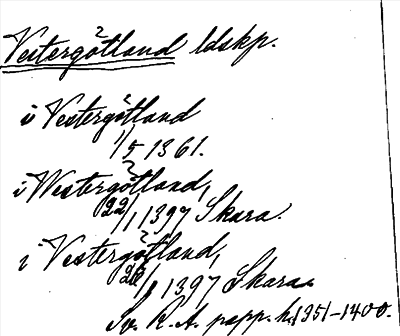 Vestergötland ldskp.
i Vestergötland
1/5 1361.
i Westergötland,
22/1 1397 Skara.
i Vestergötland,
26/1 1397 Skara.
Sv. R. A. papp. h. 1351-1400.